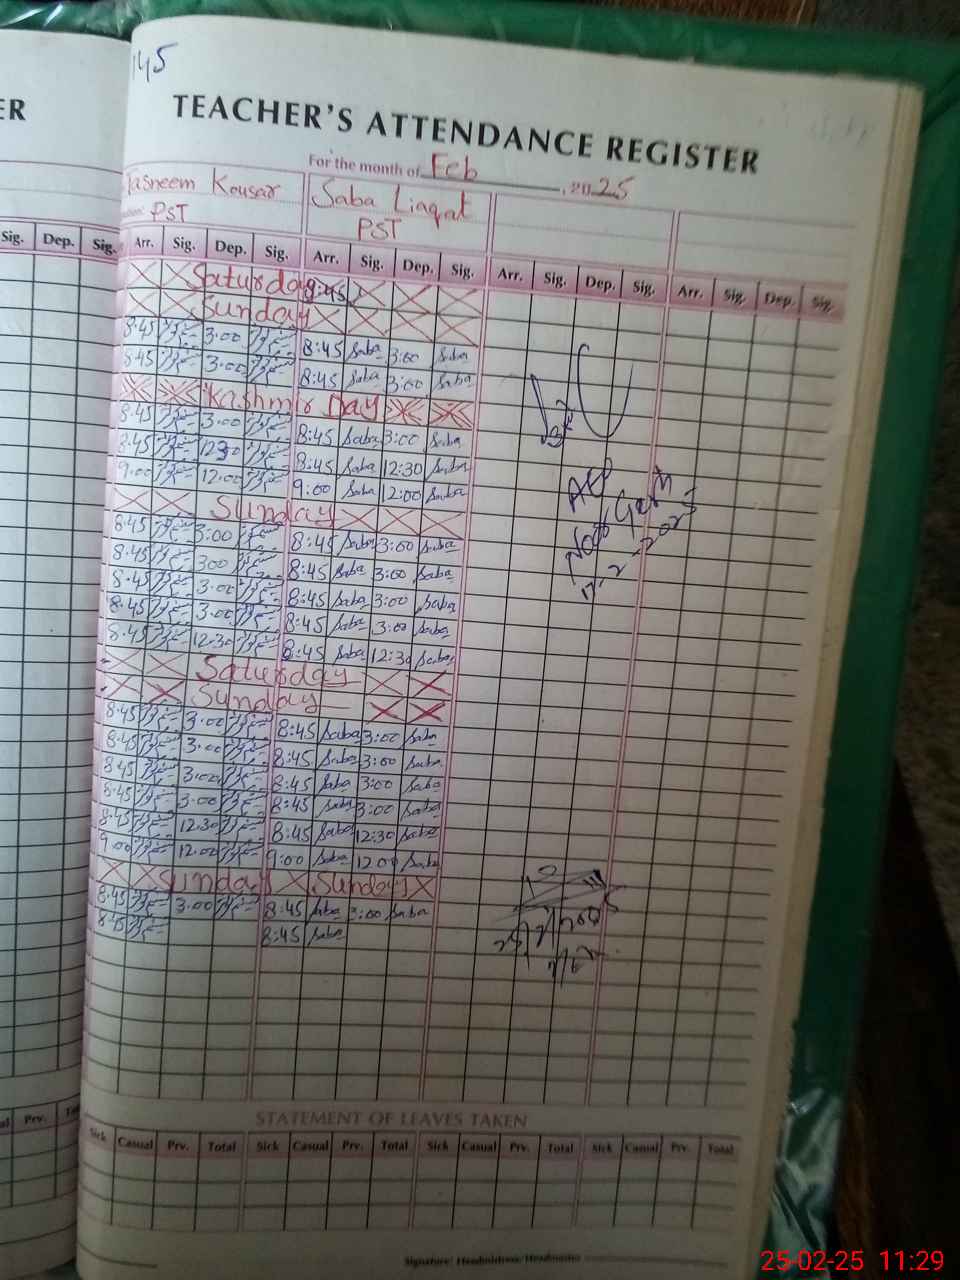 145
ER
TEACHER'S ATTENDANCE REGISTER
For the month of Feb , 2025
Tasneem Kousar Saba Liaqat
PST PST
Sig. Dep. Sig. Arr. Sig. Dep. Sig. Arr. Sig. Dep. Sig. Arr. Sig. Dep. Sig. Arr. Sig. Dep. Sig.
Saturday 8:45
Sunday
8:45 3:00 8:45 Saba 3:00 Saba
8:45 3:00 8:45 Saba 3:00 Saba
Kashmir Day
8:45 3:00 8:45 Saba 3:00 Saba
8:45 1230 8:45 Saba 12:30 Saba
9:00 12:00 9:00 Saba 12:00 Saba
Sunday
8:45 3:00 8:45 Saba 3:00 Saba
8:45 300 8:45 Saba 3:00 Saba
8:45 3:00 8:45 Saba 3:00 Saba
8:45 3:00 8:45 Saba 3:00 Saba
8:45 12:30 8:45 Saba 12:30 Saba
Saturday
Sunday
8:45 3:00 8:45 Saba 3:00 Saba
8:45 3:00 8:45 Saba 3:00 Saba
8:45 3:00 8:45 Saba 3:00 Saba
8:45 3:00 8:45 Saba 3:00 Saba
8:45 12:30 8:45 Saba 12:30 Saba
9:00 12:00 9:00 Saba 12:00 Saba
Sunday Sunday
8:45 3:00 8:45 Saba 3:00 Saba
8:45 8:45 Saba
AEO
17-2-2025
STATEMENT OF LEAVES TAKEN
Prv. Sick Casual Prv. Total Sick Casual Prv. Total Sick Casual Prv. Total Sick Casual Prv. Total
Signature: Headmistress/Headmaster
25-02-25 11:29